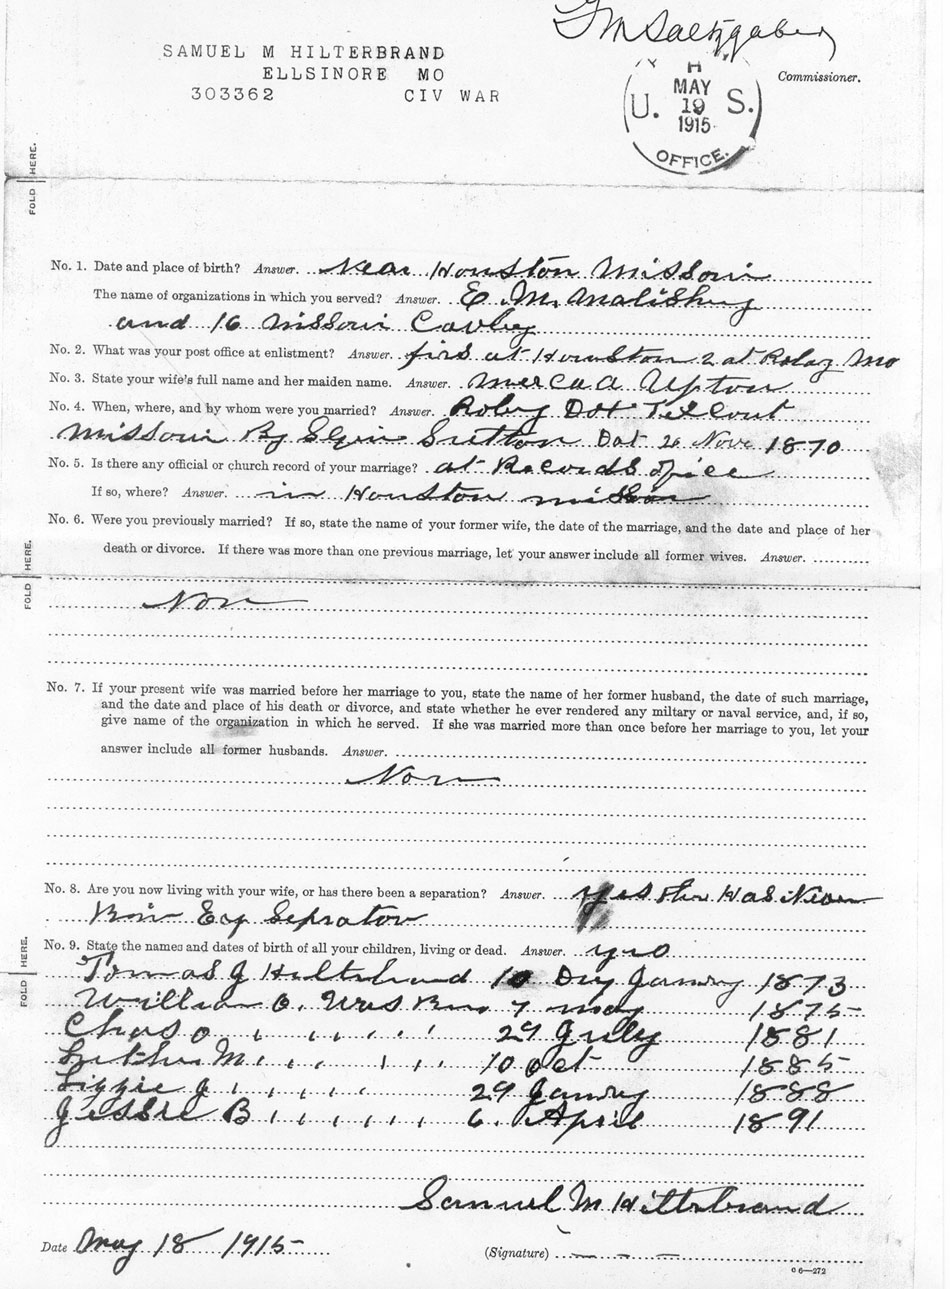 SAMUEL M HILTERBRAND
ELLSINORE MO
303362 CIV WAR
GM Saltzgaber
Commissioner.
U. S.
MAY
19
1915
OFFICE.
FOLD HERE.
No. 1. Date and place of birth? Answer. Near Houston Missouri
The name of organizations in which you served? Answer. E. M. Malishey
and 16 Missouri Cavlrey
No. 2. What was your post office at enlistment? Answer. firs at Houston 2 at Rolag Mo
No. 3. State your wife's full name and her maiden name. Answer. A Upton
No. 4. When, where, and by whom were you married? Answer. Roby Dot
Missouri By Sutton Dat 26 Nov 1870
No. 5. Is there any official or church record of your marriage? Answer. at Records ofice
If so, where? Answer. in Houston
No. 6. Were you previously married? If so, state the name of your former wife, the date of the marriage, and the date and place of her
death or divorce. If there was more than one previous marriage, let your answer include all former wives. Answer.
FOLD HERE.
Non
No. 7. If your present wife was married before her marriage to you, state the name of her former husband, the date of such marriage,
and the date and place of his death or divorce, and state whether he ever rendered any miltary or naval service, and, if so,
give name of the organization in which he served. If she was married more than once before her marriage to you, let your
answer include all former husbands. Answer.
Non
No. 8. Are you now living with your wife, or has there been a separation? Answer. yes Has
Bin Eny Sepratov
No. 9. State the names and dates of birth of all your children, living or dead. Answer.
FOLD HERE.
Tomas J Hiltebrand 10 Day Janury 1873
William O. Was Brn 7 may 1875
Chas O , , , , , , 29 July 1881
Luther M. , , , , , 10 Oct 1885
Lizzie J , , , , , 29 Janury 1888
Jessie B , , , , , 6. April 1891
Samuel M Hiltebrand
Date May 18 1915
(Signature)
C 6—272